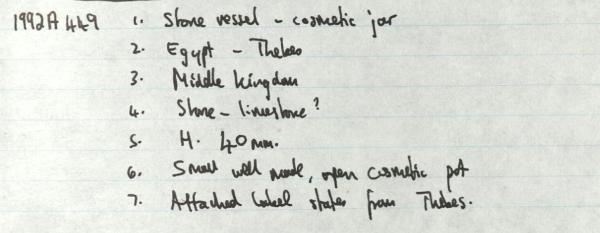 1992A449 1. Stone vessel - cosmetic jar
2. Egypt - Thebes
3. Middle Kingdom
4. Stone - limestone?
5. H. 40 mm.
6. Small well made, open cosmetic pot
7. Attached label states from Thebes.